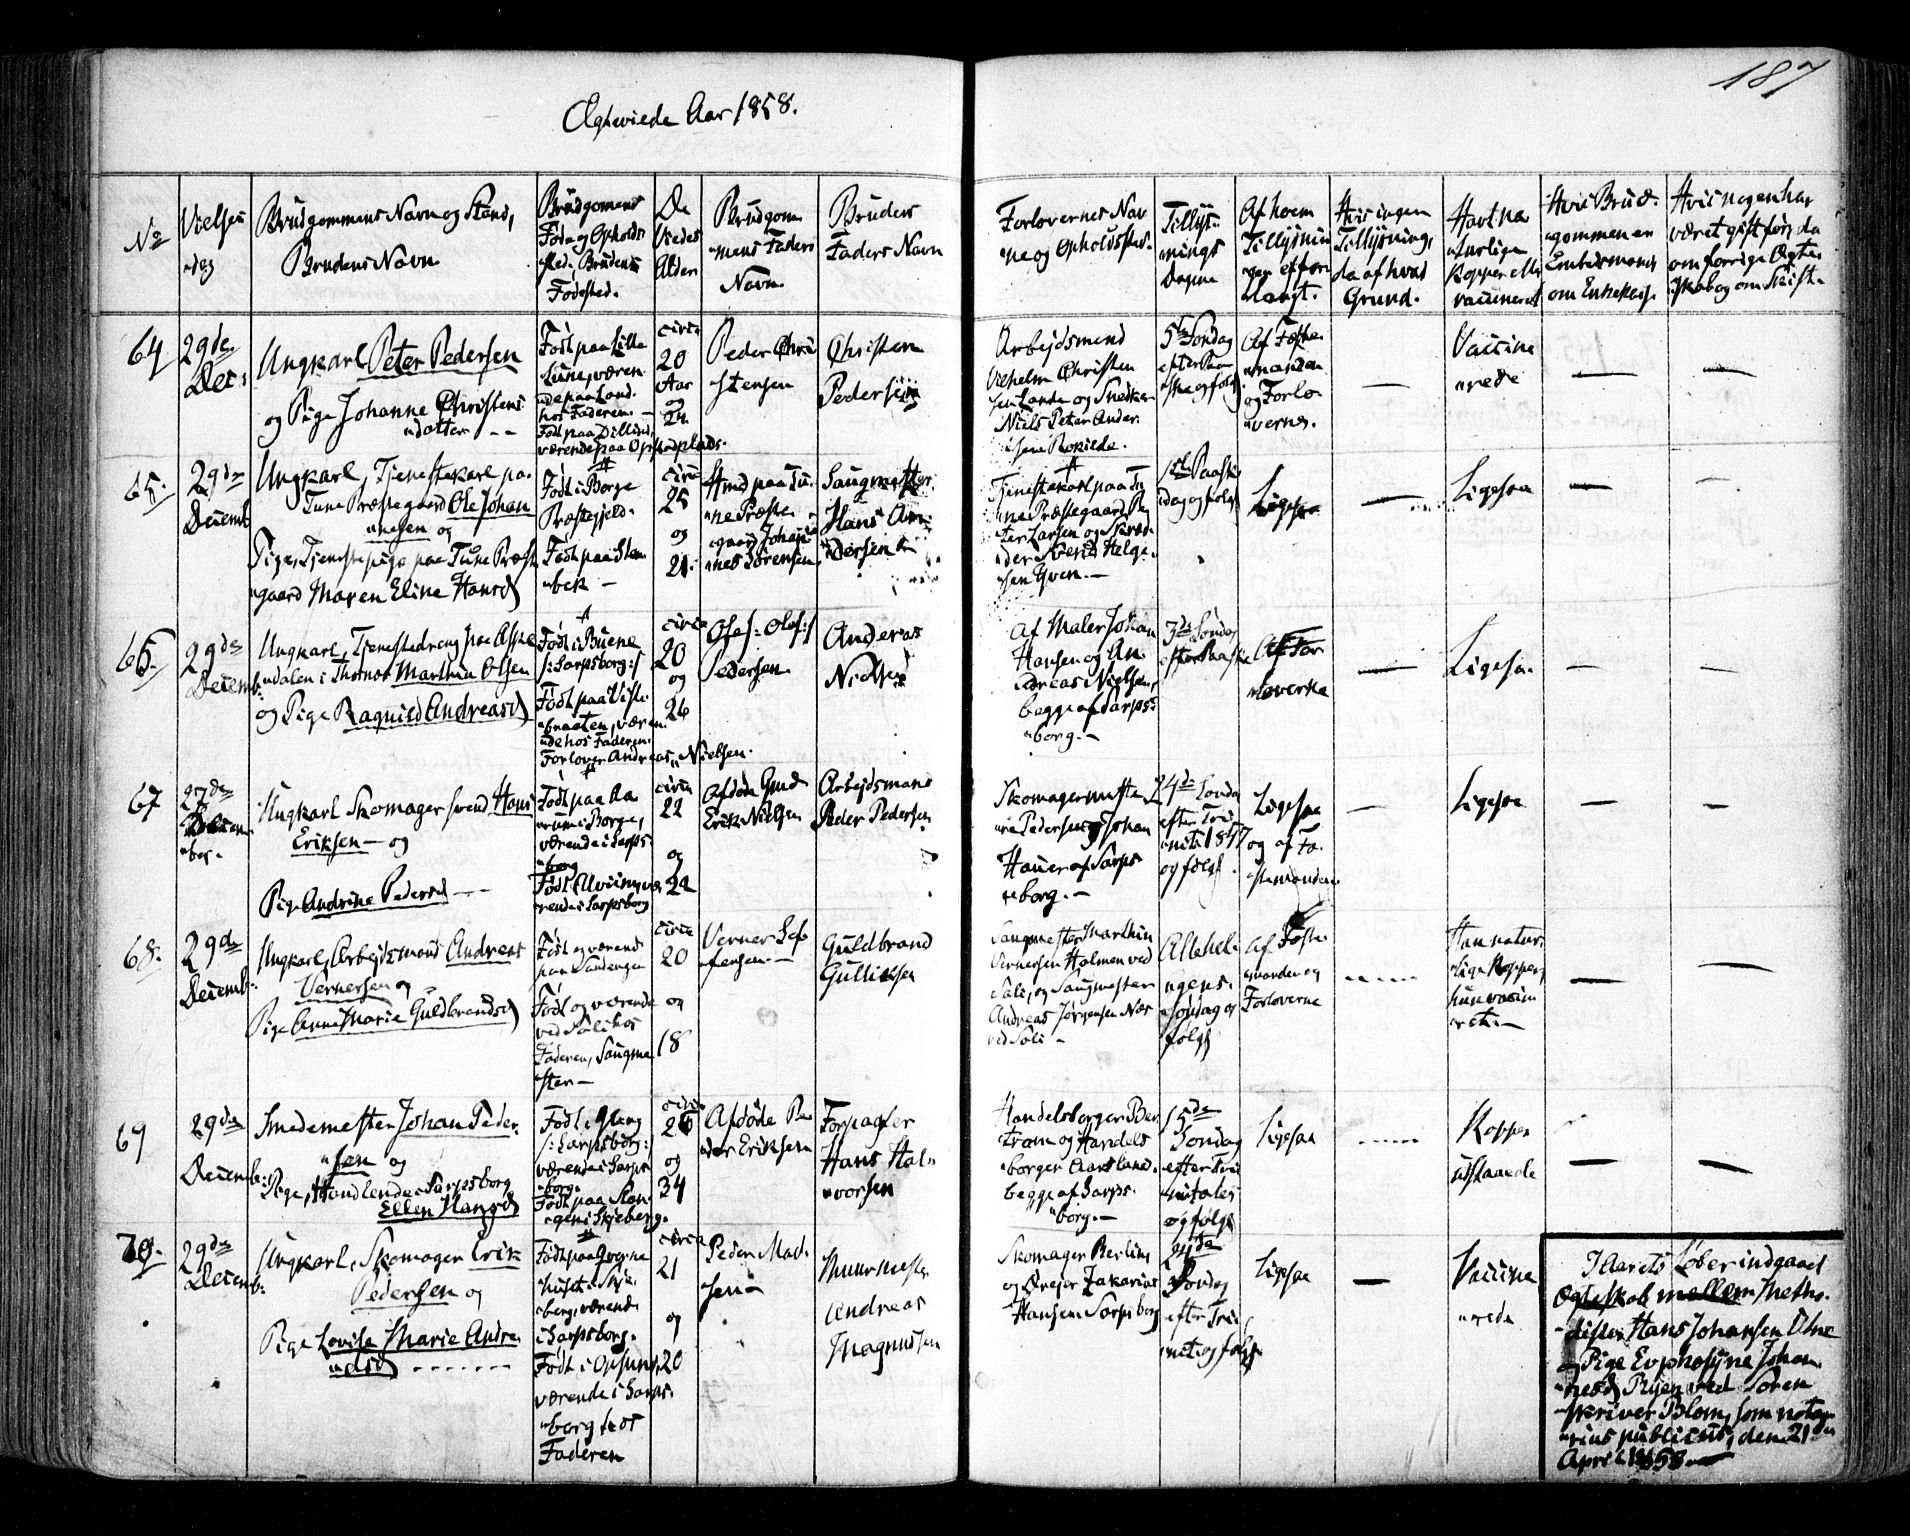 187
Ægteviede Aar 1858.
No
Vielses
dag
Brudgommens Navn og Stand,
Brudens Navn
Brudgomens
Føde og Opholds
sted. Brudens
Fødested.
De
Viedes
Alder
Brudgom
mens Faders
Navn.
Brudens
Faders Navn
Forlovernes Nav
ne og Opholdssted.
Tillys-
nings
Dagene
Af hvem
Tillysnin
gen er for
langt.
Hvis ingen
Tillysning,
da af hvad
Grund.
Havt na
turlige
Kopper eller
vaccineret
Hvis Brud-
gommen er
Embedsmand
om Enkekasse
Hvis nogen har
været gift før, da
om forrige Ægte
skab og om Skifte
64
29de
Dec:
Ungkarl Peter Pedersen
og Pige Johanne Christens
datter - -
Født paa Lille
Tune, væren
de paa Land.
hos Faderen. -
Født paa Dillind,
værende paa Opstadplads.
circa
20
Aar
og
24
Peder Chri
stensen
Christen
Pedersen
Arbejdsmand
Vilhelm Christen
sen Lande og Snedker
Niels Peter Ander
sen Rokilde.
5te Søndag
efter Paa
ske og følg.
Af Fæste
manden
og Forlo
verne.
—
Vaccine
rede
—
—
65.
29de
Decemb
Ungkarl, Tjenestekarl paa
Tune Præstegaard Ole Johan
nesen og
Pige, Tjenestepige paa Tune Præste
gaard Maren Eline Hansd
Født i Borge
Præstegjeld.
Født paa Sten
bek -
circa
25
og
21.
Hmd paa Tu
ne Præste
gaard Johan
nes Sørensen
Saugmester
Hans An
dersen
Tjenestekarl paa Tu
ne Præstegaard Pe
ter Larsen og Skræd
der Svend Helge
sen Gven. -
1ste Paaske
dag og følg
Ligesaa
—
Ligesaa
—
—
66.
29de
Decemb:
Ungkarl, Tjenestedreng paa Aspe
dalen i Thorsø Marthin Olsen
og Pige Ragnild Andreasd
Født i Buene
/: Sarpsborg :/
Født paa Viste
braaten, væren
de hos Faderen.
Forlover Andreas Nielsen.
circa
20
og
26
Ole /: Olof :/
Pedersen
Andreas
Nielsen
Af Maler Johan
Hansen og An
dreas Nielsen,
begge af Sarps
borg. -
3die Søndag
efter Paaske
Af For
loverne
—
Ligesaa
—
—
67
27de
Decem
ber.
Ungkarl Skomagersvend Hans
Eriksen - og
Pige Andrine Pedersd -
Født paa Aa
rum i Borge,
værende i Sarps
borg
Født i Uviin, væ
rende i Sarpsborg
circa
22
og
22
Afdøde Gmd
Erik Nielsen
Arbejdsmand
Peder Pedersen
Skomagermeste
rne Pedersen og Johan
Hauer af Sarps
borg. -
24de Søndag
efter Tri
nit. 1857
og følg.
Ligesaa
og af Fæ
stemanden
—
Ligesaa
—
—
68.
29de
Decemb:
Ungkarl, Arbejdsmand Andreas
Vernersen og
Pige Anne Marie Guldbrandsd
Født og værend
paa Sandengen
Født og værende
ved Sølihos
Faderen, Saugme
ster -
circa
20
og
18
Verner Jef
fersen -
Guldbrand
Gulliksen
Saugmester Marthin
Vernersen Holmen ved
Soli, og Saugmester
Andreas Jørgensen Næs
ved Soli -
Allehel-
gens-
Søndag og
følg
Af Fæste
manden og
Forloverne
-----
Han natur
lige Kopper,
hun vaccin
eret. -
—
—
69
29de
Decemb:
Smedemester Johan Peder
sen og
Pige, Handlende i Sarpsborg
Ellen Hansd
Født i Gleng
/: Sarpsborg :/
værende i Sarps
borg.
Født paa Ston
egen i Skjeberg.
circa
26
og
34
Afdøde Pe
der Eriksen
Forpagter
Hans Hal
vorsen
Handelsborger Ber
tram og Handels
borger Aarsland.
begge af Sarps
borg. -
15de
Søndag
efter Tri
nitatis
og følg
Ligesaa
-----
Kopper
udstaaede
—
—
70.
29de
Decemb:
Ungkarl, Skomager Erik
Pedersen og
Pige Lovise Marie Andre
asd -------
Født paa Qværne
huset i Skje
berg, værend.
i Sarpsborg.
Født i Opsund,
værende i Sarps
borg hos
Faderen
circa
21
og
20
Peder Mad
sen
Muurmester
Andreas
Magnussen
Skomager Berlin,
og Drejer Zakarias
Hansen Sarpsborg
24de
Søndag
efter Tri
nit. og følg
Ligesaa
—
Vaccine
rede
I Aarets Løber indgaaet
Ægteskab mellem Metho
disten Hans Johansen Ulne
og Pige Evphosyne Johan
nesd Ryen ved Soren
skriver Blom, som nota
rius publicus, den 21de
April 1858